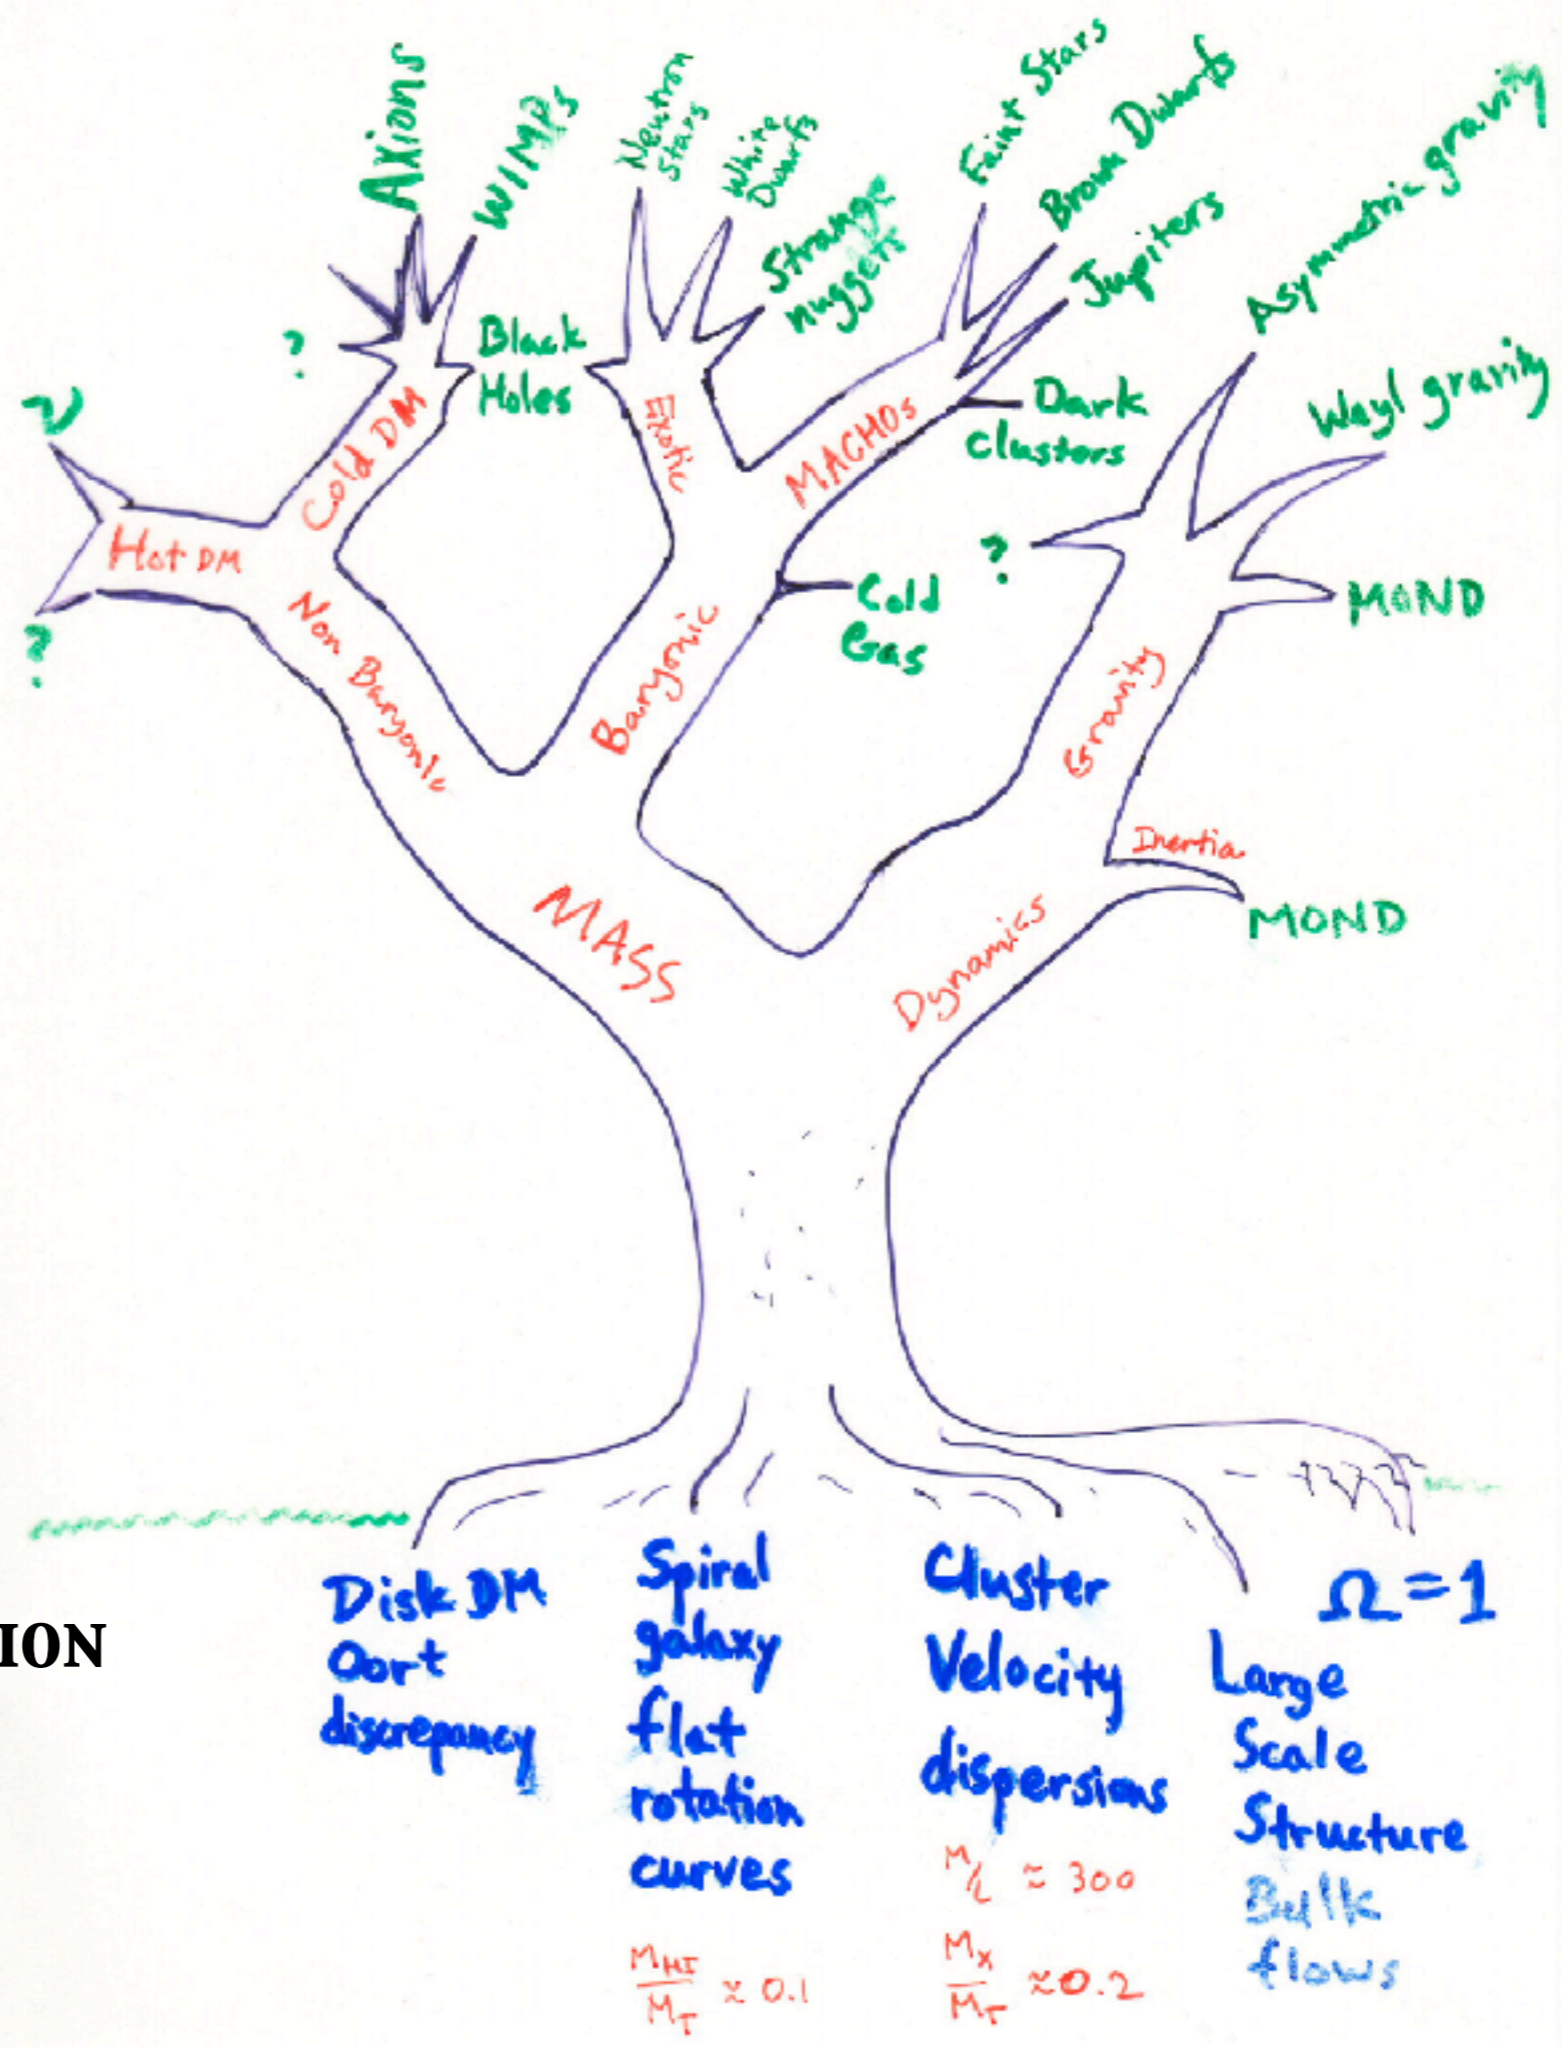 Axions
WIMPs
Neutron
Stars
White
Dwarfs
Strange
nuggets
Faint Stars
Brown Dwarfs
Jupiters
Asymmetric gravity
Weyl gravity
?
Black
Holes
Dark
clusters
ν
Cold DM
Exotic
MACHOs
Hot DM
?
?
Cold
Gas
MOND
Non Baryonic
Baryonic
Gravity
Inertia
MOND
MASS
Dynamics
Disk DM
Oort
discrepancy
Spiral
galaxy
flat
rotation
curves
M_HI / M_T ≈ 0.1
Cluster
Velocity
dispersions
M/L ≈ 300
M_X / M_T ≈ 0.2
Ω = 1
Large
Scale
Structure
Bulk
flows
ION